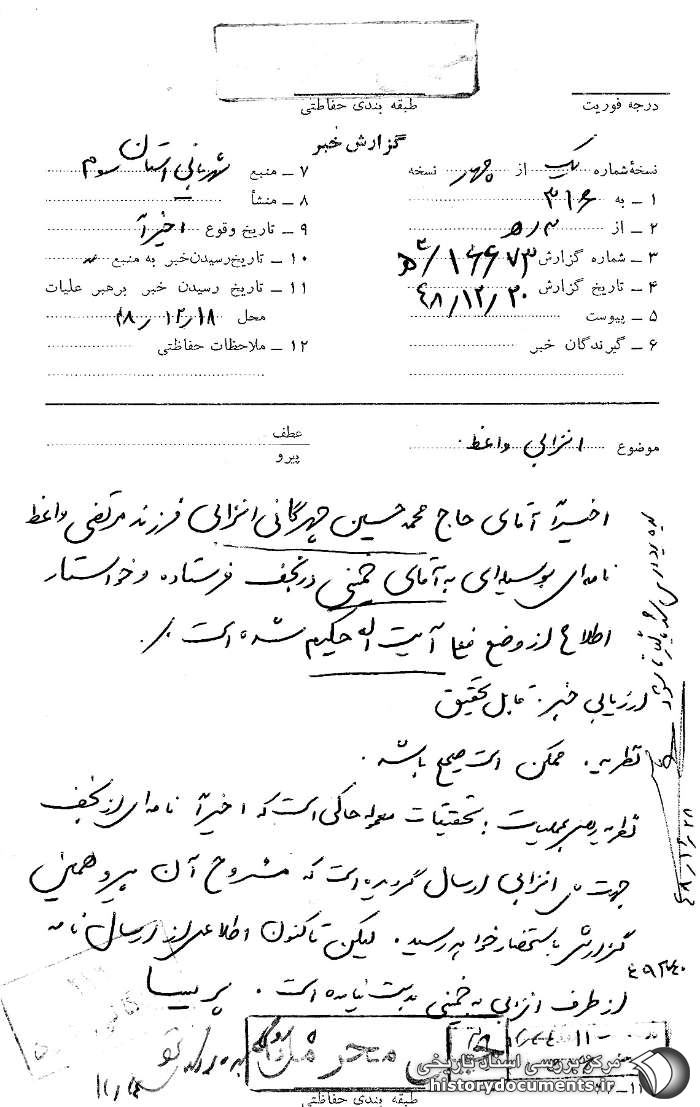 درجه فوریت
طبقه بندی حفاظتی
گزارش خبر
نسخهٔ شماره یک از چهار نسخه
۱ ـ به ۳۱۶
۲ ـ از
۳ ـ شماره گزارش
۴ ـ تاریخ گزارش ۴۸/۱۲/۲۰
۵ ـ پیوست
۶ ـ گیرندگان خبر
۷ ـ منبع شهربانی استان سوم
۸ ـ منشأ
۹ ـ تاریخ وقوع اخیراً
۱۰ ـ تاریخ رسیدن خبر به منبع
۱۱ ـ تاریخ رسیدن خبر برهبر عملیات
محل ۴۸/۱۲/۱۸
۱۲ ـ ملاحظات حفاظتی
موضوع انزابی واعظ
عطف
پیرو
اخیراً آقای حاج محمد حسین چهرگانی انزابی فرزند مرتضی واعظ
نامه‌ای بوسیله‌ای به آقای خمینی در نجف فرستاده و خواستار
اطلاع از وضع آیت اله حکیم شده است.
ارزیابی خبر: قابل تحقیق
نظریه. ممکن است صحیح باشد.
نظریه رهبر عملیات: تحقیقات معموله حاکی است که اخیراً نامه‌ای از نجف
جهت انزابی ارسال گردیده است که مشروح آن پیرو همین
گزارش باستحضار خواهد رسید. لیکن تاکنون اطلاعی از ارسال نامه
از طرف انزابی به خمینی بدست نیامده است. پریسا
۴۸/۱۲/۲۸
خیلی محرمانه
طبقه بندی حفاظتی
مرکز بررسی اسناد تاریخی
historydocuments.ir